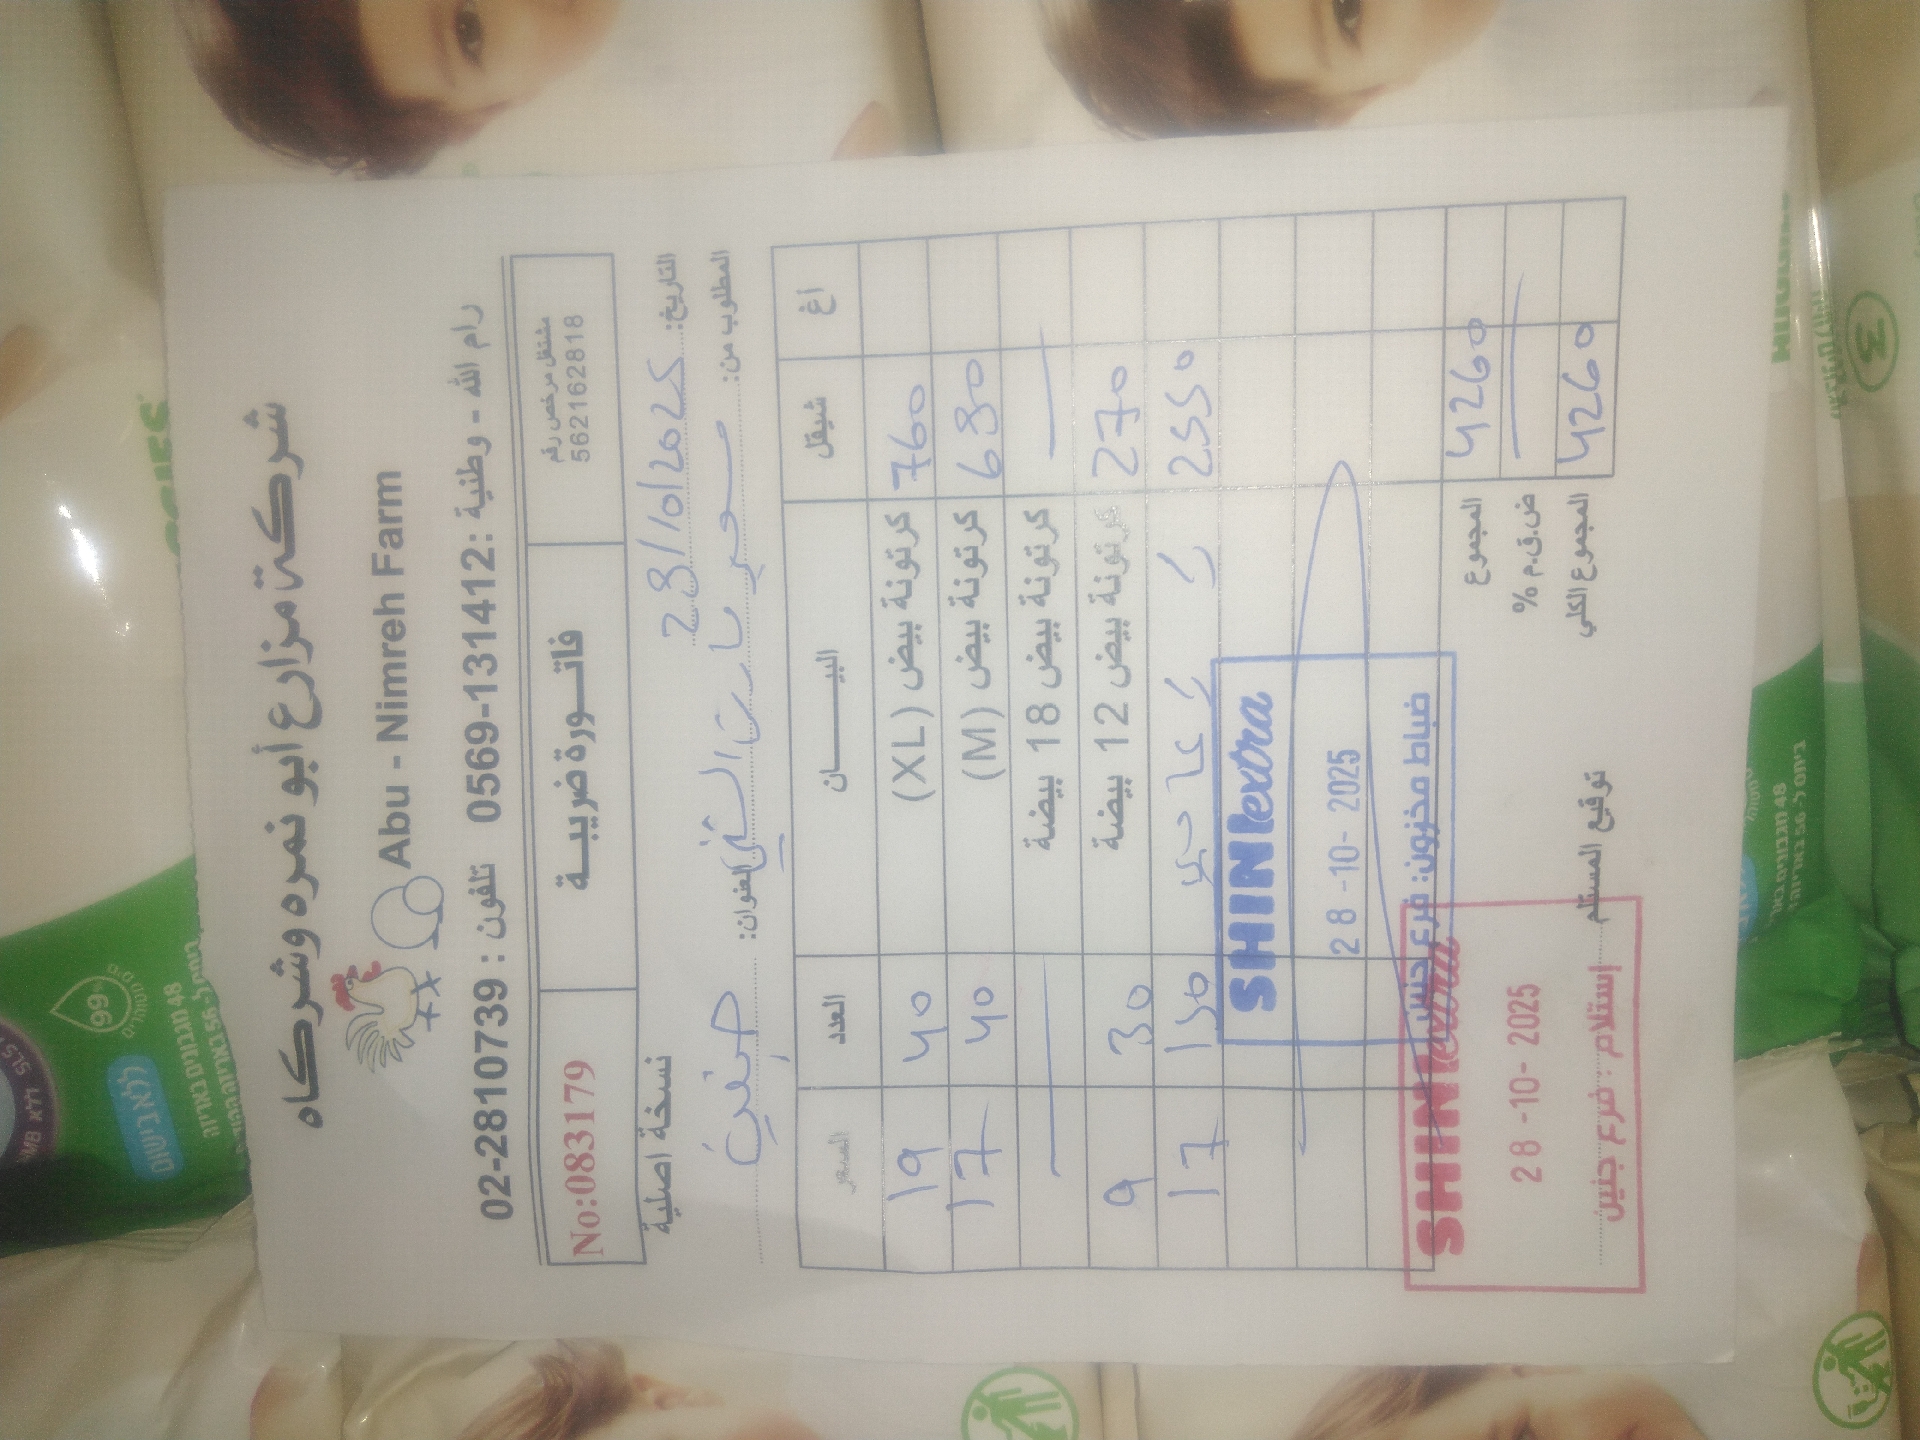 شركة مزارع أبو نمره وشركاه
Abu - Nimreh Farm
02-2810739 : تلفون 0569-131412: رام الله - وطنية
No:083179
فاتــورة ضريبيــة
مشتغل مرخص رقم
562162818
نسخة اصلية
التاريخ: 28/10/2025
المطلوب من: سوبر مارت الشني العنوان: جنين
السعر العدد البيــــــان شيقل أغ
19 40 كرتونة بيض (XL) 760
17 40 كرتونة بيض (M) 680
كرتونة بيض 18 بيضة
9 30 كرتونة بيض 12 بيضة 270
17 150 2550
SHINI extra
28 -10- 2025
ضباط مخزون: فرع جنين
المجموع 4260
ض.ق.م %
المجموع الكلي 4260
توقيع المستلم
SHINI extra
28 -10- 2025
إستلام : فرع جنين
99%
ללא בישום
48 מגבונים באריזה